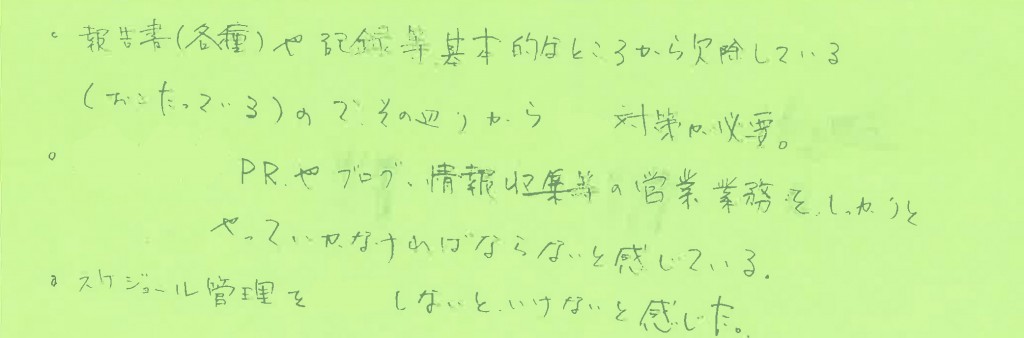 。報告書(各種)や記録等基本的なところから欠除している
(おこたっている)のでその辺りから 対策が必要。
。 PRやブログ、情報収集等の営業業務をしっかりと
やっていかなければならないと感じている。
。スケジュール管理を しないといけないと感じた。